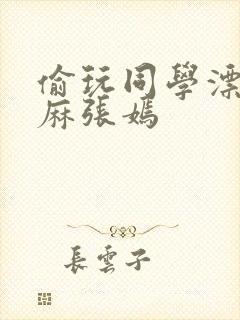 偷玩同學漂
麻張嫣
長雲子